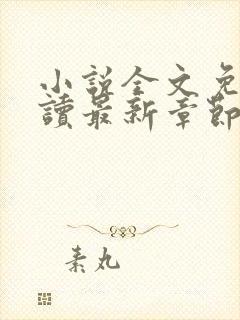 小說全文免
讀最新章節
素丸